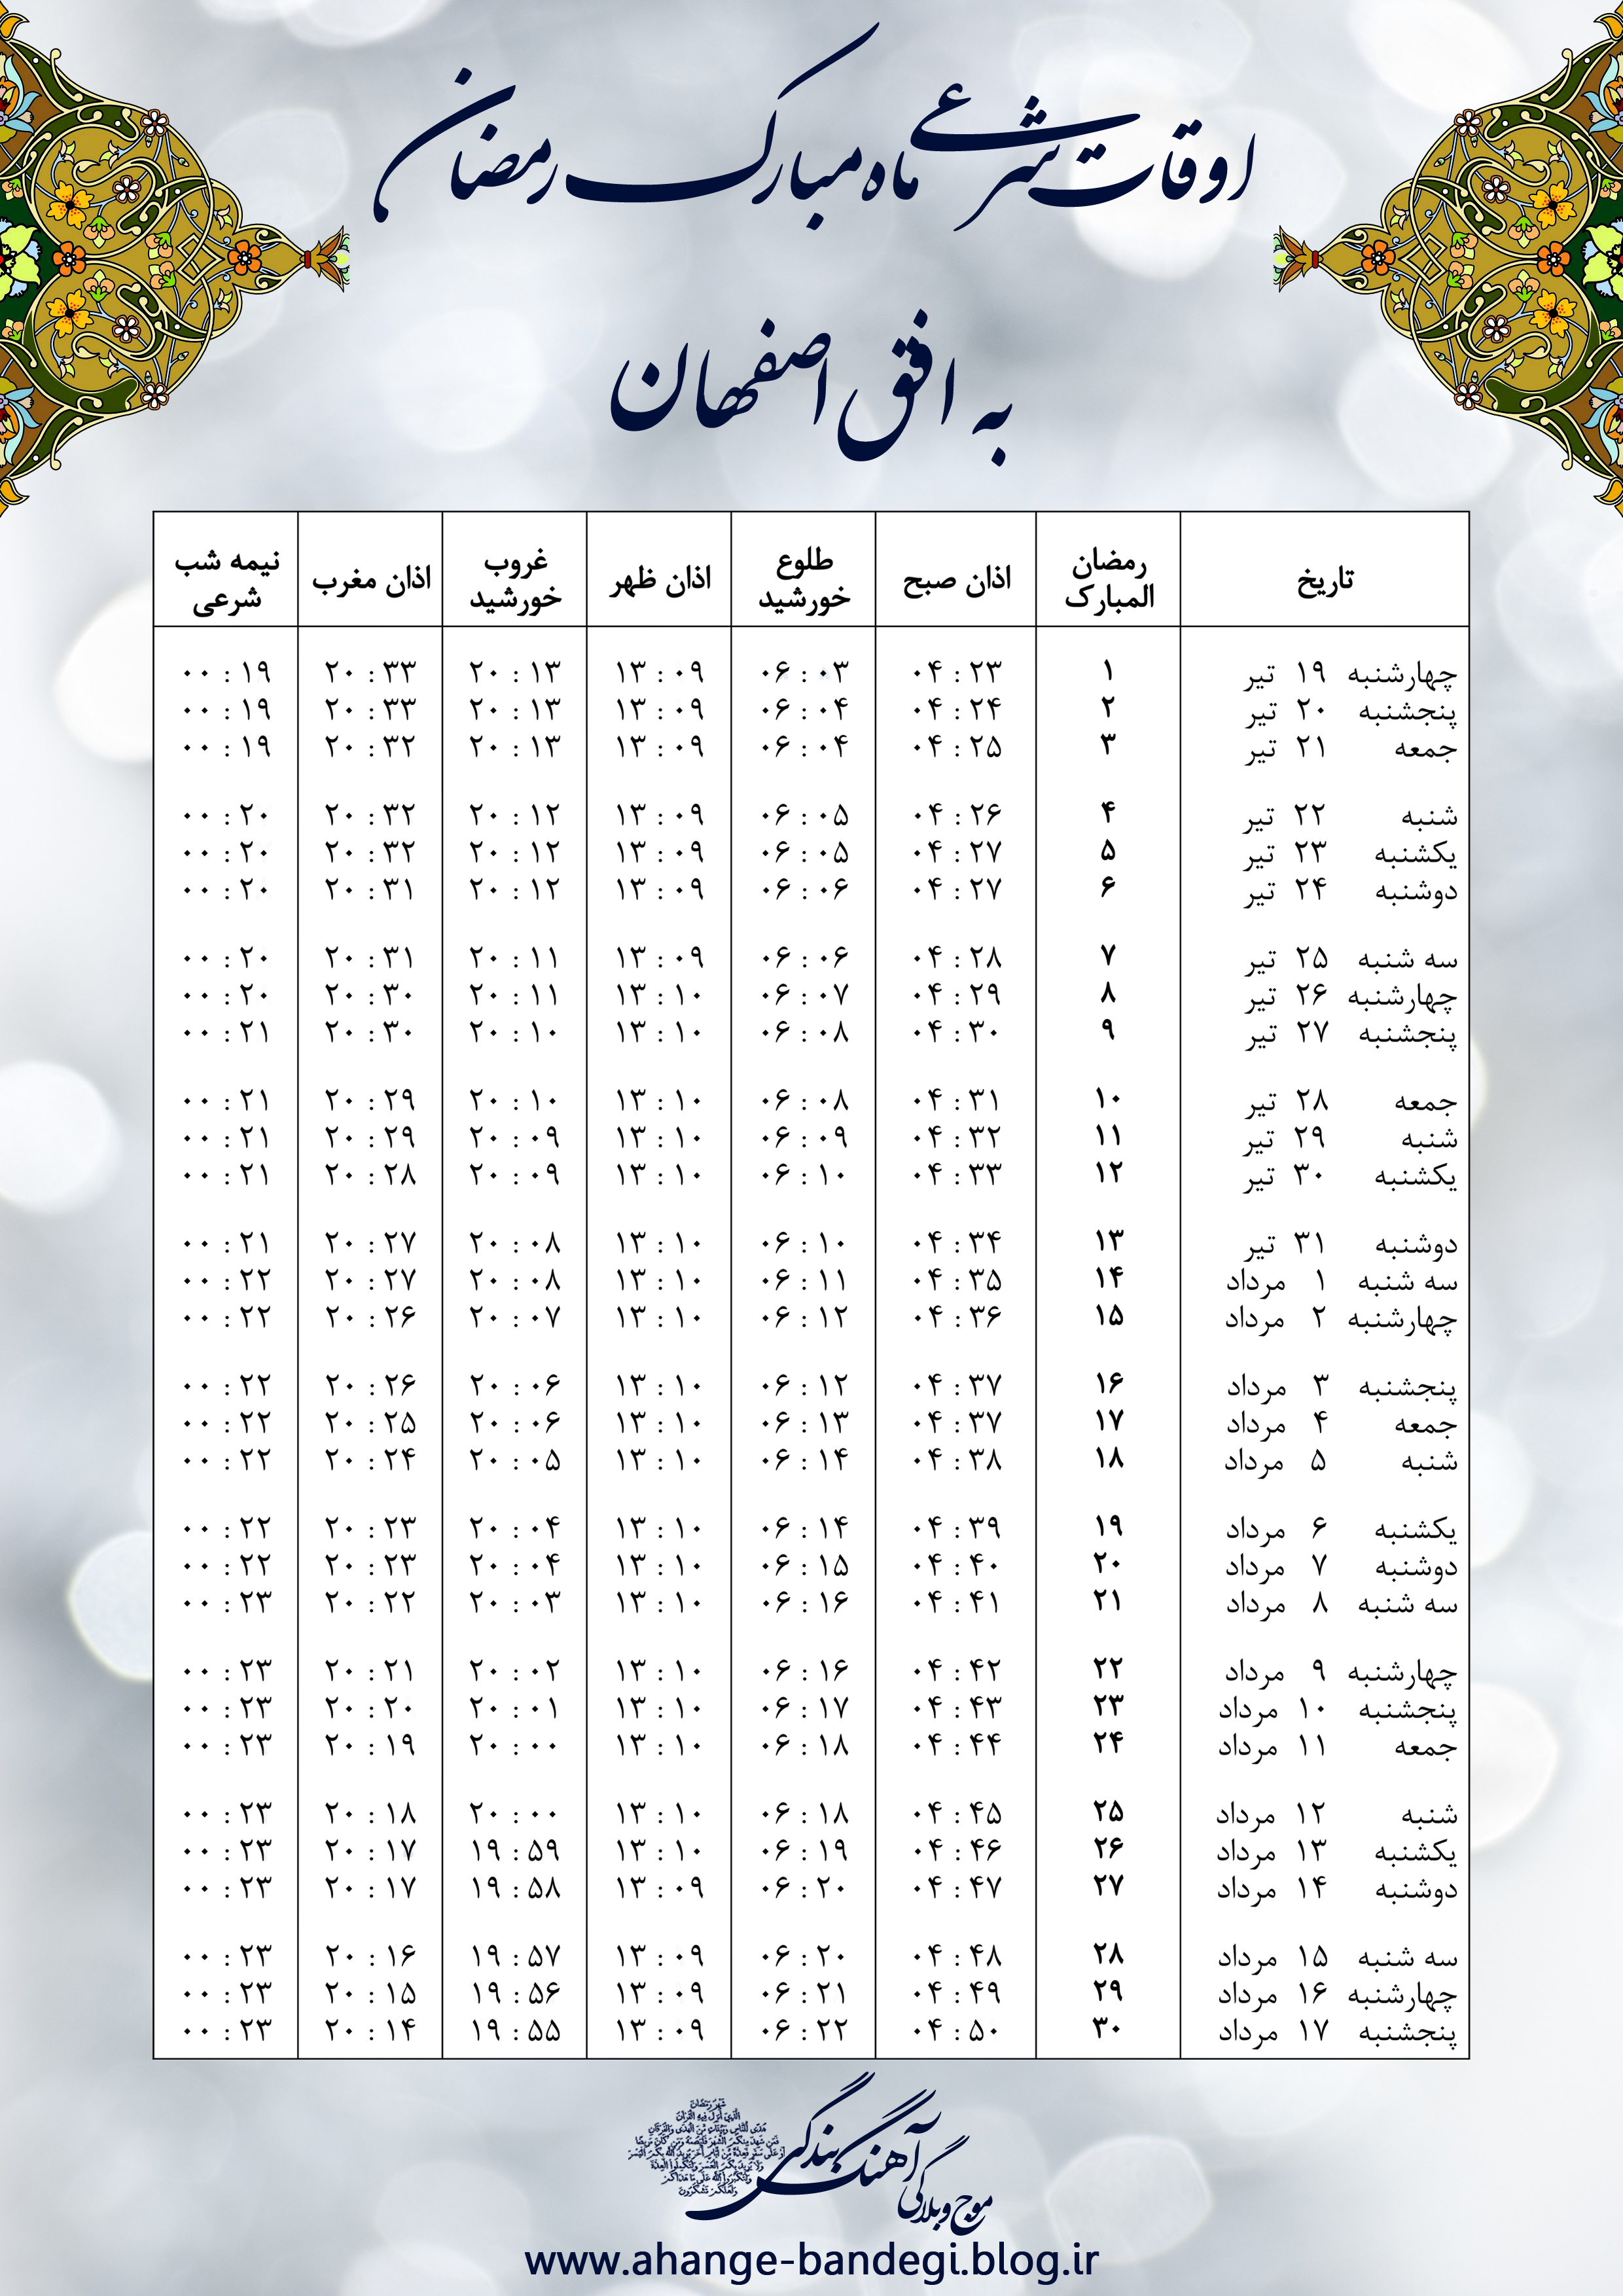 اوقات شرعی ماه مبارک رمضان
به افق اصفهان
تاریخ رمضان المبارک اذان صبح طلوع خورشید اذان ظهر غروب خورشید اذان مغرب نیمه شب شرعی
چهارشنبه ۱۹ تیر ۱ ۰۴:۲۳ ۰۶:۰۳ ۱۳:۰۹ ۲۰:۱۳ ۲۰:۳۳ ۰۰:۱۹
پنجشنبه ۲۰ تیر ۲ ۰۴:۲۴ ۰۶:۰۴ ۱۳:۰۹ ۲۰:۱۳ ۲۰:۳۳ ۰۰:۱۹
جمعه ۲۱ تیر ۳ ۰۴:۲۵ ۰۶:۰۴ ۱۳:۰۹ ۲۰:۱۳ ۲۰:۳۲ ۰۰:۱۹
شنبه ۲۲ تیر ۴ ۰۴:۲۶ ۰۶:۰۵ ۱۳:۰۹ ۲۰:۱۲ ۲۰:۳۲ ۰۰:۲۰
یکشنبه ۲۳ تیر ۵ ۰۴:۲۷ ۰۶:۰۵ ۱۳:۰۹ ۲۰:۱۲ ۲۰:۳۲ ۰۰:۲۰
دوشنبه ۲۴ تیر ۶ ۰۴:۲۷ ۰۶:۰۶ ۱۳:۰۹ ۲۰:۱۲ ۲۰:۳۱ ۰۰:۲۰
سه شنبه ۲۵ تیر ۷ ۰۴:۲۸ ۰۶:۰۶ ۱۳:۰۹ ۲۰:۱۱ ۲۰:۳۱ ۰۰:۲۰
چهارشنبه ۲۶ تیر ۸ ۰۴:۲۹ ۰۶:۰۷ ۱۳:۱۰ ۲۰:۱۱ ۲۰:۳۰ ۰۰:۲۰
پنجشنبه ۲۷ تیر ۹ ۰۴:۳۰ ۰۶:۰۸ ۱۳:۱۰ ۲۰:۱۰ ۲۰:۳۰ ۰۰:۲۱
جمعه ۲۸ تیر ۱۰ ۰۴:۳۱ ۰۶:۰۸ ۱۳:۱۰ ۲۰:۱۰ ۲۰:۲۹ ۰۰:۲۱
شنبه ۲۹ تیر ۱۱ ۰۴:۳۲ ۰۶:۰۹ ۱۳:۱۰ ۲۰:۰۹ ۲۰:۲۹ ۰۰:۲۱
یکشنبه ۳۰ تیر ۱۲ ۰۴:۳۳ ۰۶:۱۰ ۱۳:۱۰ ۲۰:۰۹ ۲۰:۲۸ ۰۰:۲۱
دوشنبه ۳۱ تیر ۱۳ ۰۴:۳۴ ۰۶:۱۰ ۱۳:۱۰ ۲۰:۰۸ ۲۰:۲۷ ۰۰:۲۱
سه شنبه ۱ مرداد ۱۴ ۰۴:۳۵ ۰۶:۱۱ ۱۳:۱۰ ۲۰:۰۸ ۲۰:۲۷ ۰۰:۲۲
چهارشنبه ۲ مرداد ۱۵ ۰۴:۳۶ ۰۶:۱۲ ۱۳:۱۰ ۲۰:۰۷ ۲۰:۲۶ ۰۰:۲۲
پنجشنبه ۳ مرداد ۱۶ ۰۴:۳۷ ۰۶:۱۲ ۱۳:۱۰ ۲۰:۰۶ ۲۰:۲۶ ۰۰:۲۲
جمعه ۴ مرداد ۱۷ ۰۴:۳۷ ۰۶:۱۳ ۱۳:۱۰ ۲۰:۰۶ ۲۰:۲۵ ۰۰:۲۲
شنبه ۵ مرداد ۱۸ ۰۴:۳۸ ۰۶:۱۴ ۱۳:۱۰ ۲۰:۰۵ ۲۰:۲۴ ۰۰:۲۲
یکشنبه ۶ مرداد ۱۹ ۰۴:۳۹ ۰۶:۱۴ ۱۳:۱۰ ۲۰:۰۴ ۲۰:۲۳ ۰۰:۲۲
دوشنبه ۷ مرداد ۲۰ ۰۴:۴۰ ۰۶:۱۵ ۱۳:۱۰ ۲۰:۰۴ ۲۰:۲۳ ۰۰:۲۲
سه شنبه ۸ مرداد ۲۱ ۰۴:۴۱ ۰۶:۱۶ ۱۳:۱۰ ۲۰:۰۳ ۲۰:۲۲ ۰۰:۲۳
چهارشنبه ۹ مرداد ۲۲ ۰۴:۴۲ ۰۶:۱۶ ۱۳:۱۰ ۲۰:۰۲ ۲۰:۲۱ ۰۰:۲۳
پنجشنبه ۱۰ مرداد ۲۳ ۰۴:۴۳ ۰۶:۱۷ ۱۳:۱۰ ۲۰:۰۱ ۲۰:۲۰ ۰۰:۲۳
جمعه ۱۱ مرداد ۲۴ ۰۴:۴۴ ۰۶:۱۸ ۱۳:۱۰ ۲۰:۰۰ ۲۰:۱۹ ۰۰:۲۳
شنبه ۱۲ مرداد ۲۵ ۰۴:۴۵ ۰۶:۱۸ ۱۳:۱۰ ۲۰:۰۰ ۲۰:۱۸ ۰۰:۲۳
یکشنبه ۱۳ مرداد ۲۶ ۰۴:۴۶ ۰۶:۱۹ ۱۳:۱۰ ۱۹:۵۹ ۲۰:۱۷ ۰۰:۲۳
دوشنبه ۱۴ مرداد ۲۷ ۰۴:۴۷ ۰۶:۲۰ ۱۳:۰۹ ۱۹:۵۸ ۲۰:۱۷ ۰۰:۲۳
سه شنبه ۱۵ مرداد ۲۸ ۰۴:۴۸ ۰۶:۲۰ ۱۳:۰۹ ۱۹:۵۷ ۲۰:۱۶ ۰۰:۲۳
چهارشنبه ۱۶ مرداد ۲۹ ۰۴:۴۹ ۰۶:۲۱ ۱۳:۰۹ ۱۹:۵۶ ۲۰:۱۵ ۰۰:۲۳
پنجشنبه ۱۷ مرداد ۳۰ ۰۴:۵۰ ۰۶:۲۲ ۱۳:۰۹ ۱۹:۵۵ ۲۰:۱۴ ۰۰:۲۳
موج وبلاگی آهنگ بندگی
www.ahange-bandegi.blog.ir